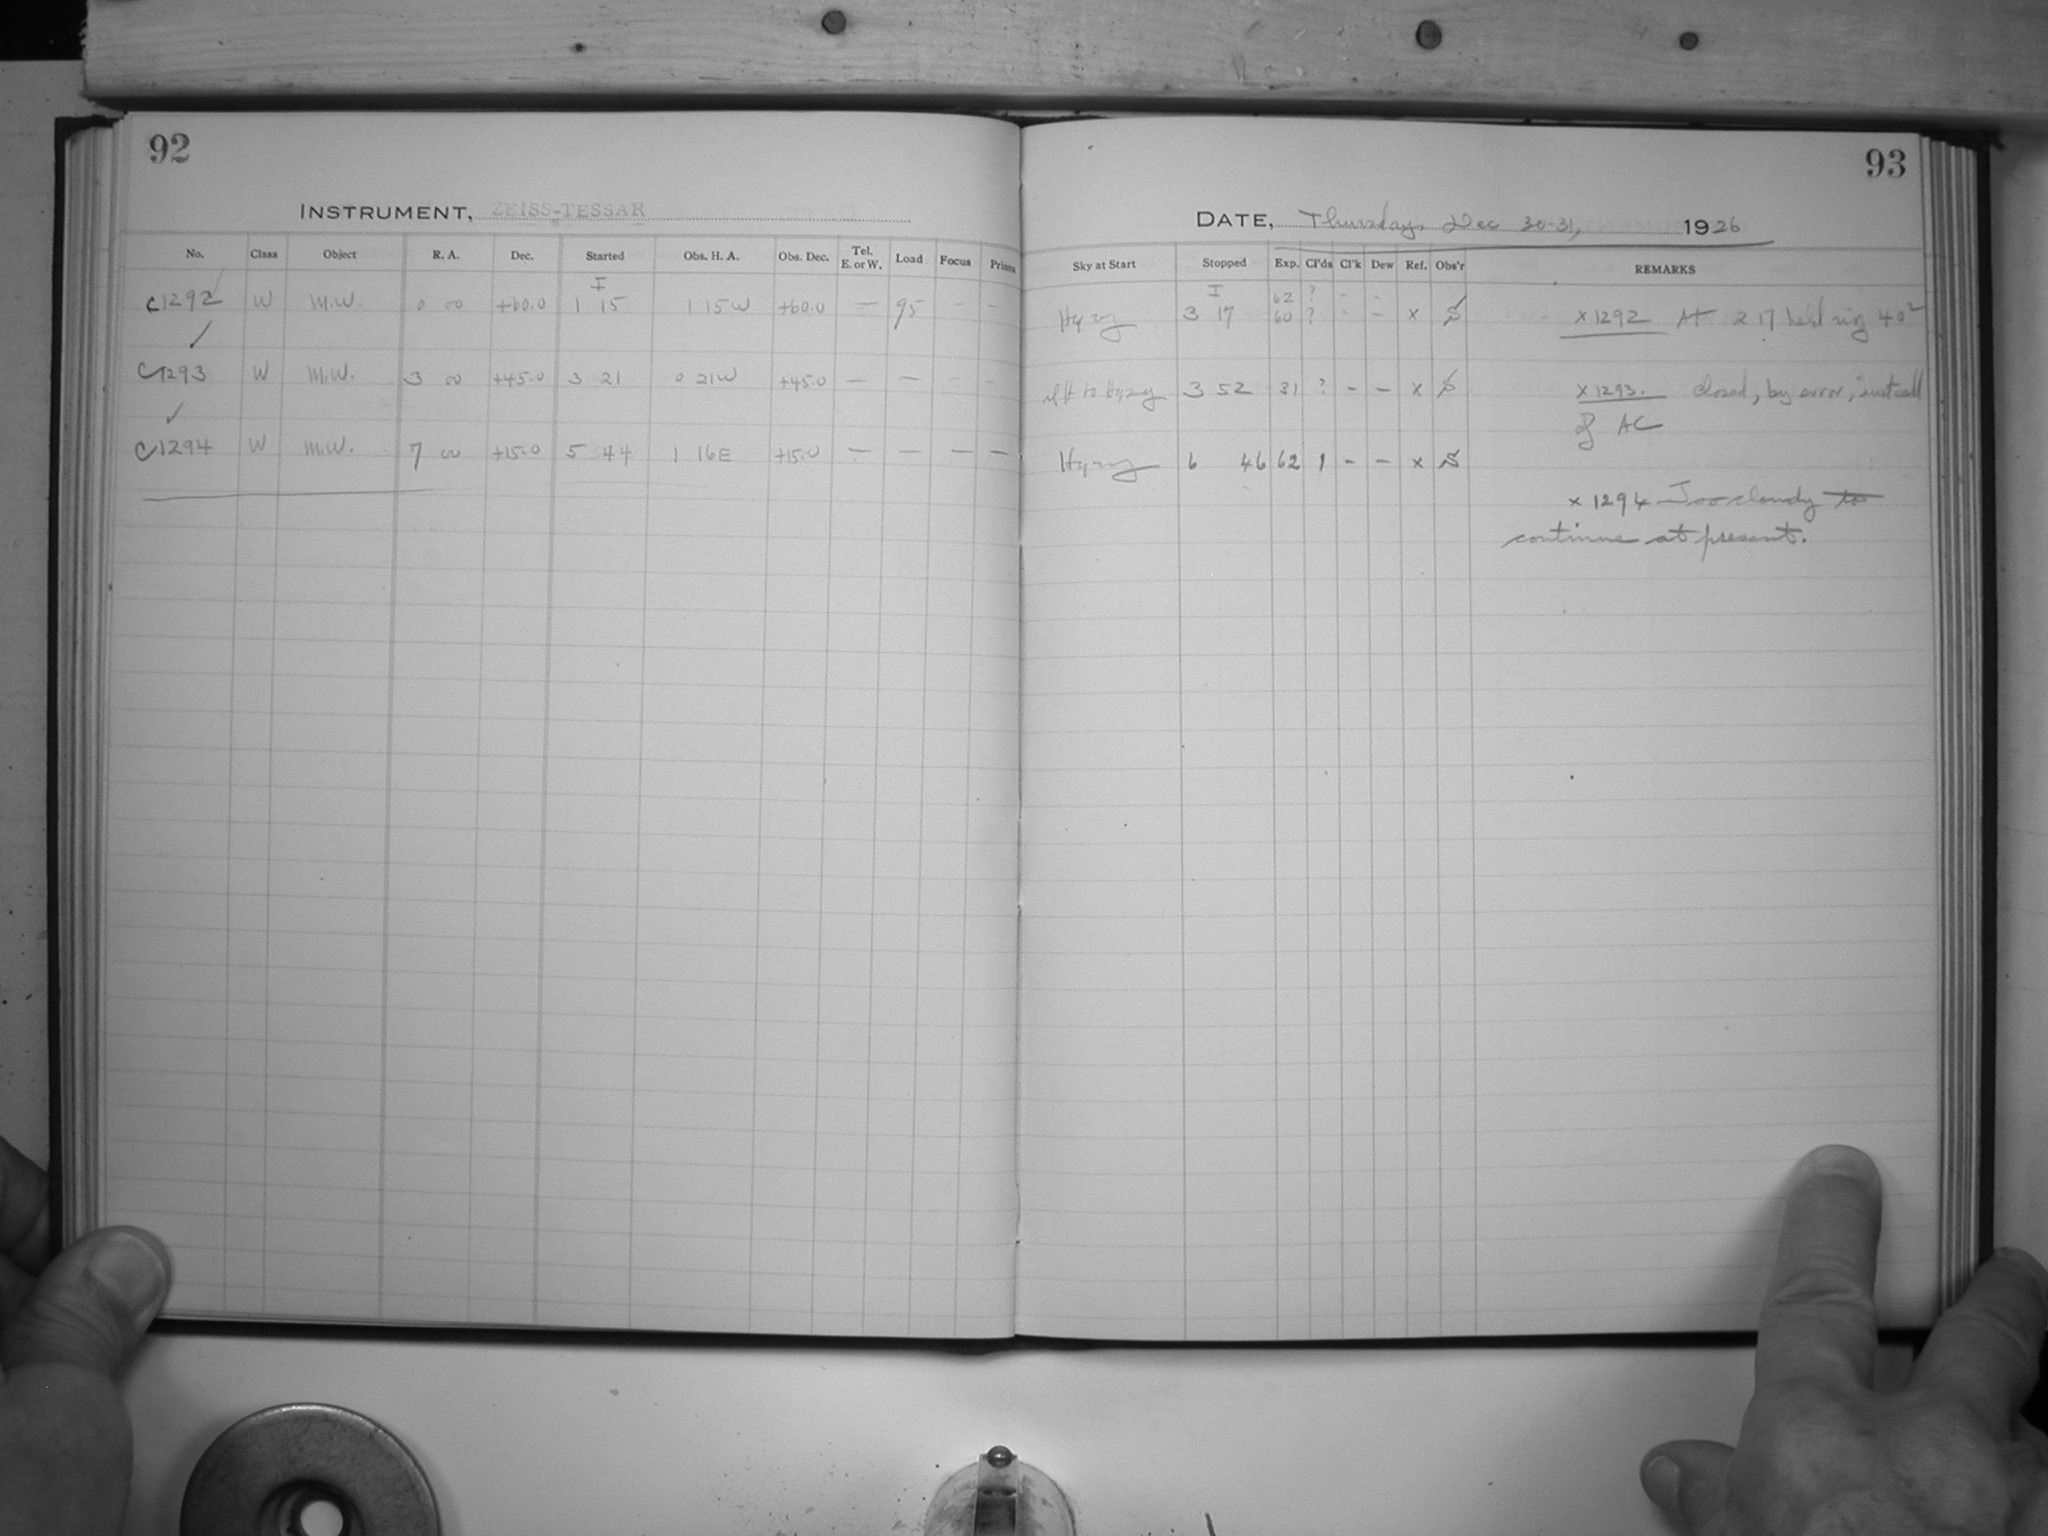 92
INSTRUMENT, ZEISS-TESSAR
No. Class Object R. A. Dec. Started Obs. H. A. Obs. Dec. Tel. E. or W. Load Focus Prisms
I
C1292 W M.W. 0 00 +60.0 1 15 1 15W +60.0 — 95 - -
C1293 W M.W. 3 00 +45.0 3 21 0 21W +45.0 — — - -
C1294 W M.W. 7 00 +15.0 5 44 1 16E +15.0 — — — —
93
DATE, Thursday, Dec 30-31, 1926
Sky at Start Stopped Exp. Cl'ds Cl'k Dew Ref. Obs'r REMARKS
I 62 ? - -
Hazy 3 17 60 ? - - x S x 1292 At 2 17 held rig 40
to Hazy 3 52 31 ? - - x S x 1293. closed, by error, instead
of AC
Hazy 6 46 62 1 - - x S
x 1294 Too cloudy to
continue at present.